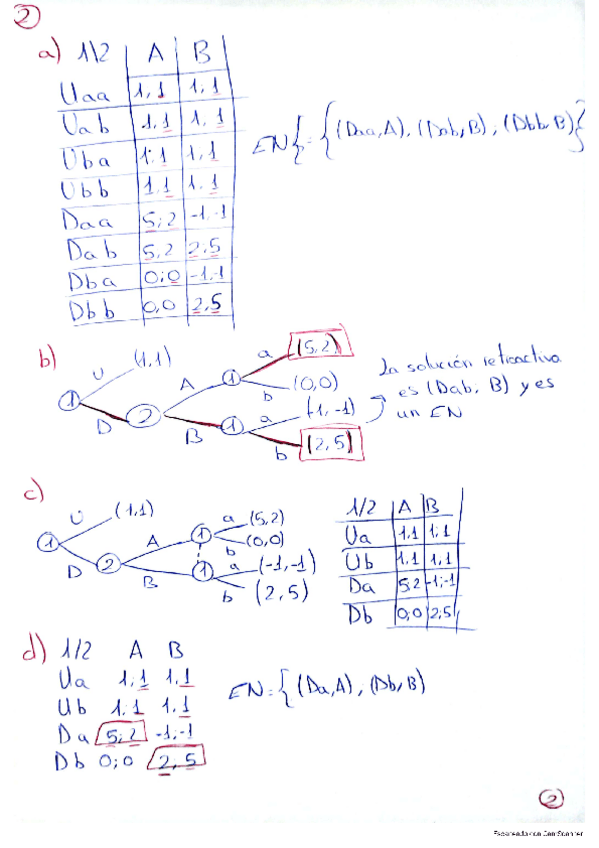 2
a) 1\2 A B
Uaa 1,1 1,1
Uab 1,1 1,1
Uba 1,1 1,1
Ubb 1,1 1,1
Daa 5;2 -1,-1
Dab 5,2 2,5
Dba 0;0 -1,-1
Dbb 0,0 2,5
EN = {(Daa,A), (Dab,B), (Dbb,B)}
b)
1 U (1,1)
D 2
A 1 a (5,2)
b (0,0)
B 1 a (-1,-1)
b (2,5)
La solución retroactiva
es (Dab, B) y es
un EN
c)
1 U (1,1)
D 2
A 1 a (5,2)
b (0,0)
B 1 a (-1,-1)
b (2,5)
1/2 A B
Ua 1,1 1;1
Ub 1,1 1,1
Da 5,2 -1;-1
Db 0;0 2,5
d) 1/2 A B
Ua 1,1 1,1
Ub 1,1 1,1
Da 5;2 -1,-1
Db 0;0 2,5
EN = {(Da,A), (Db,B)
2
Escaneado con CamScanner